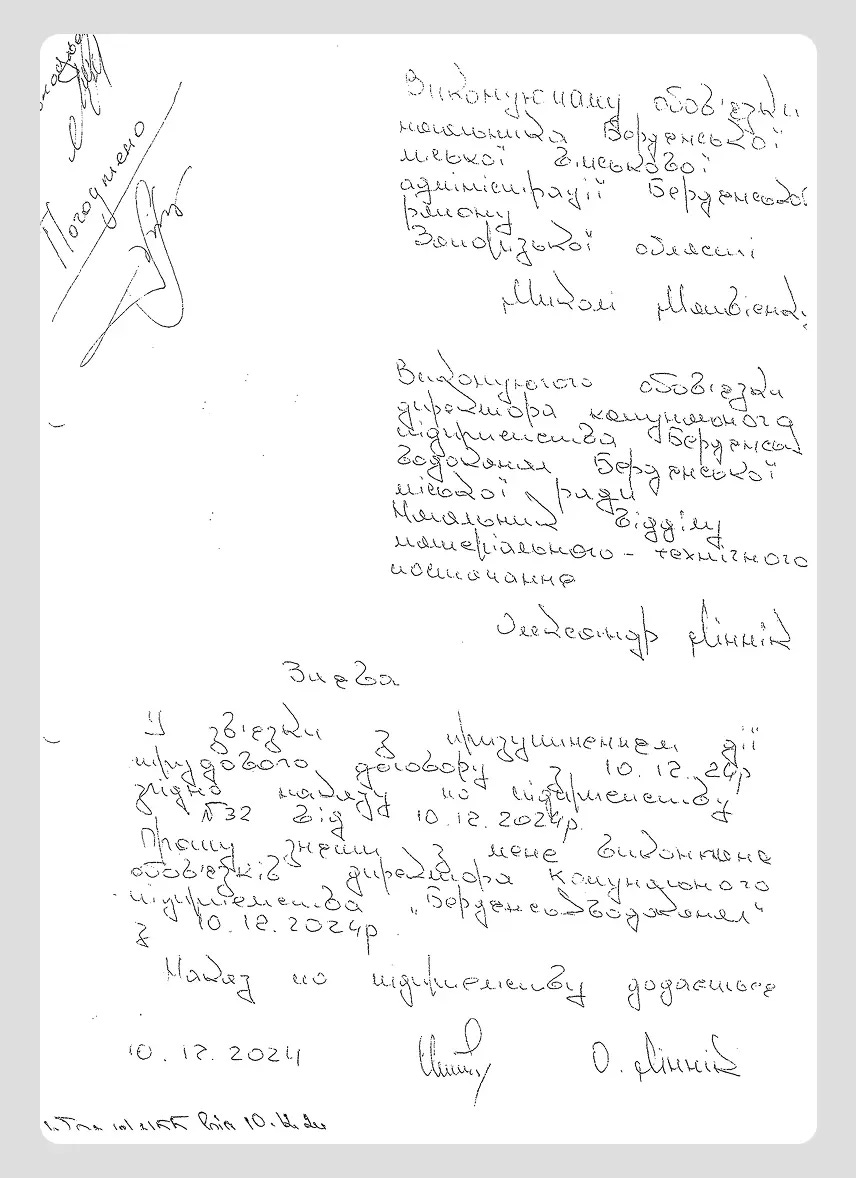 Погоджено
Виконуючому обов'язки
начальника Бердянської
міської військової
адміністрації Бердянської
району
Запорізької області
Миколі
Виконуючого обов'язки
директора комунального
підприємства Бердянськ
водоканал Бердянської
міської ради
Начальник відділу
матеріального - технічного
постачання
Олександр Ліннік
Заява
У зв'язки з призупиненням дії
трудового договору з 10.12.24р
згідно наказу по підприємству
№32 від 10.12.2024р.
Прошу зняти з мене виконання
обов'язків директора комунального
підприємства „Бердянськводоканал“
з 10.12.2024р.
Наказ по підприємству додається
10.12.2024 О. Ліннік
від 10.12.24